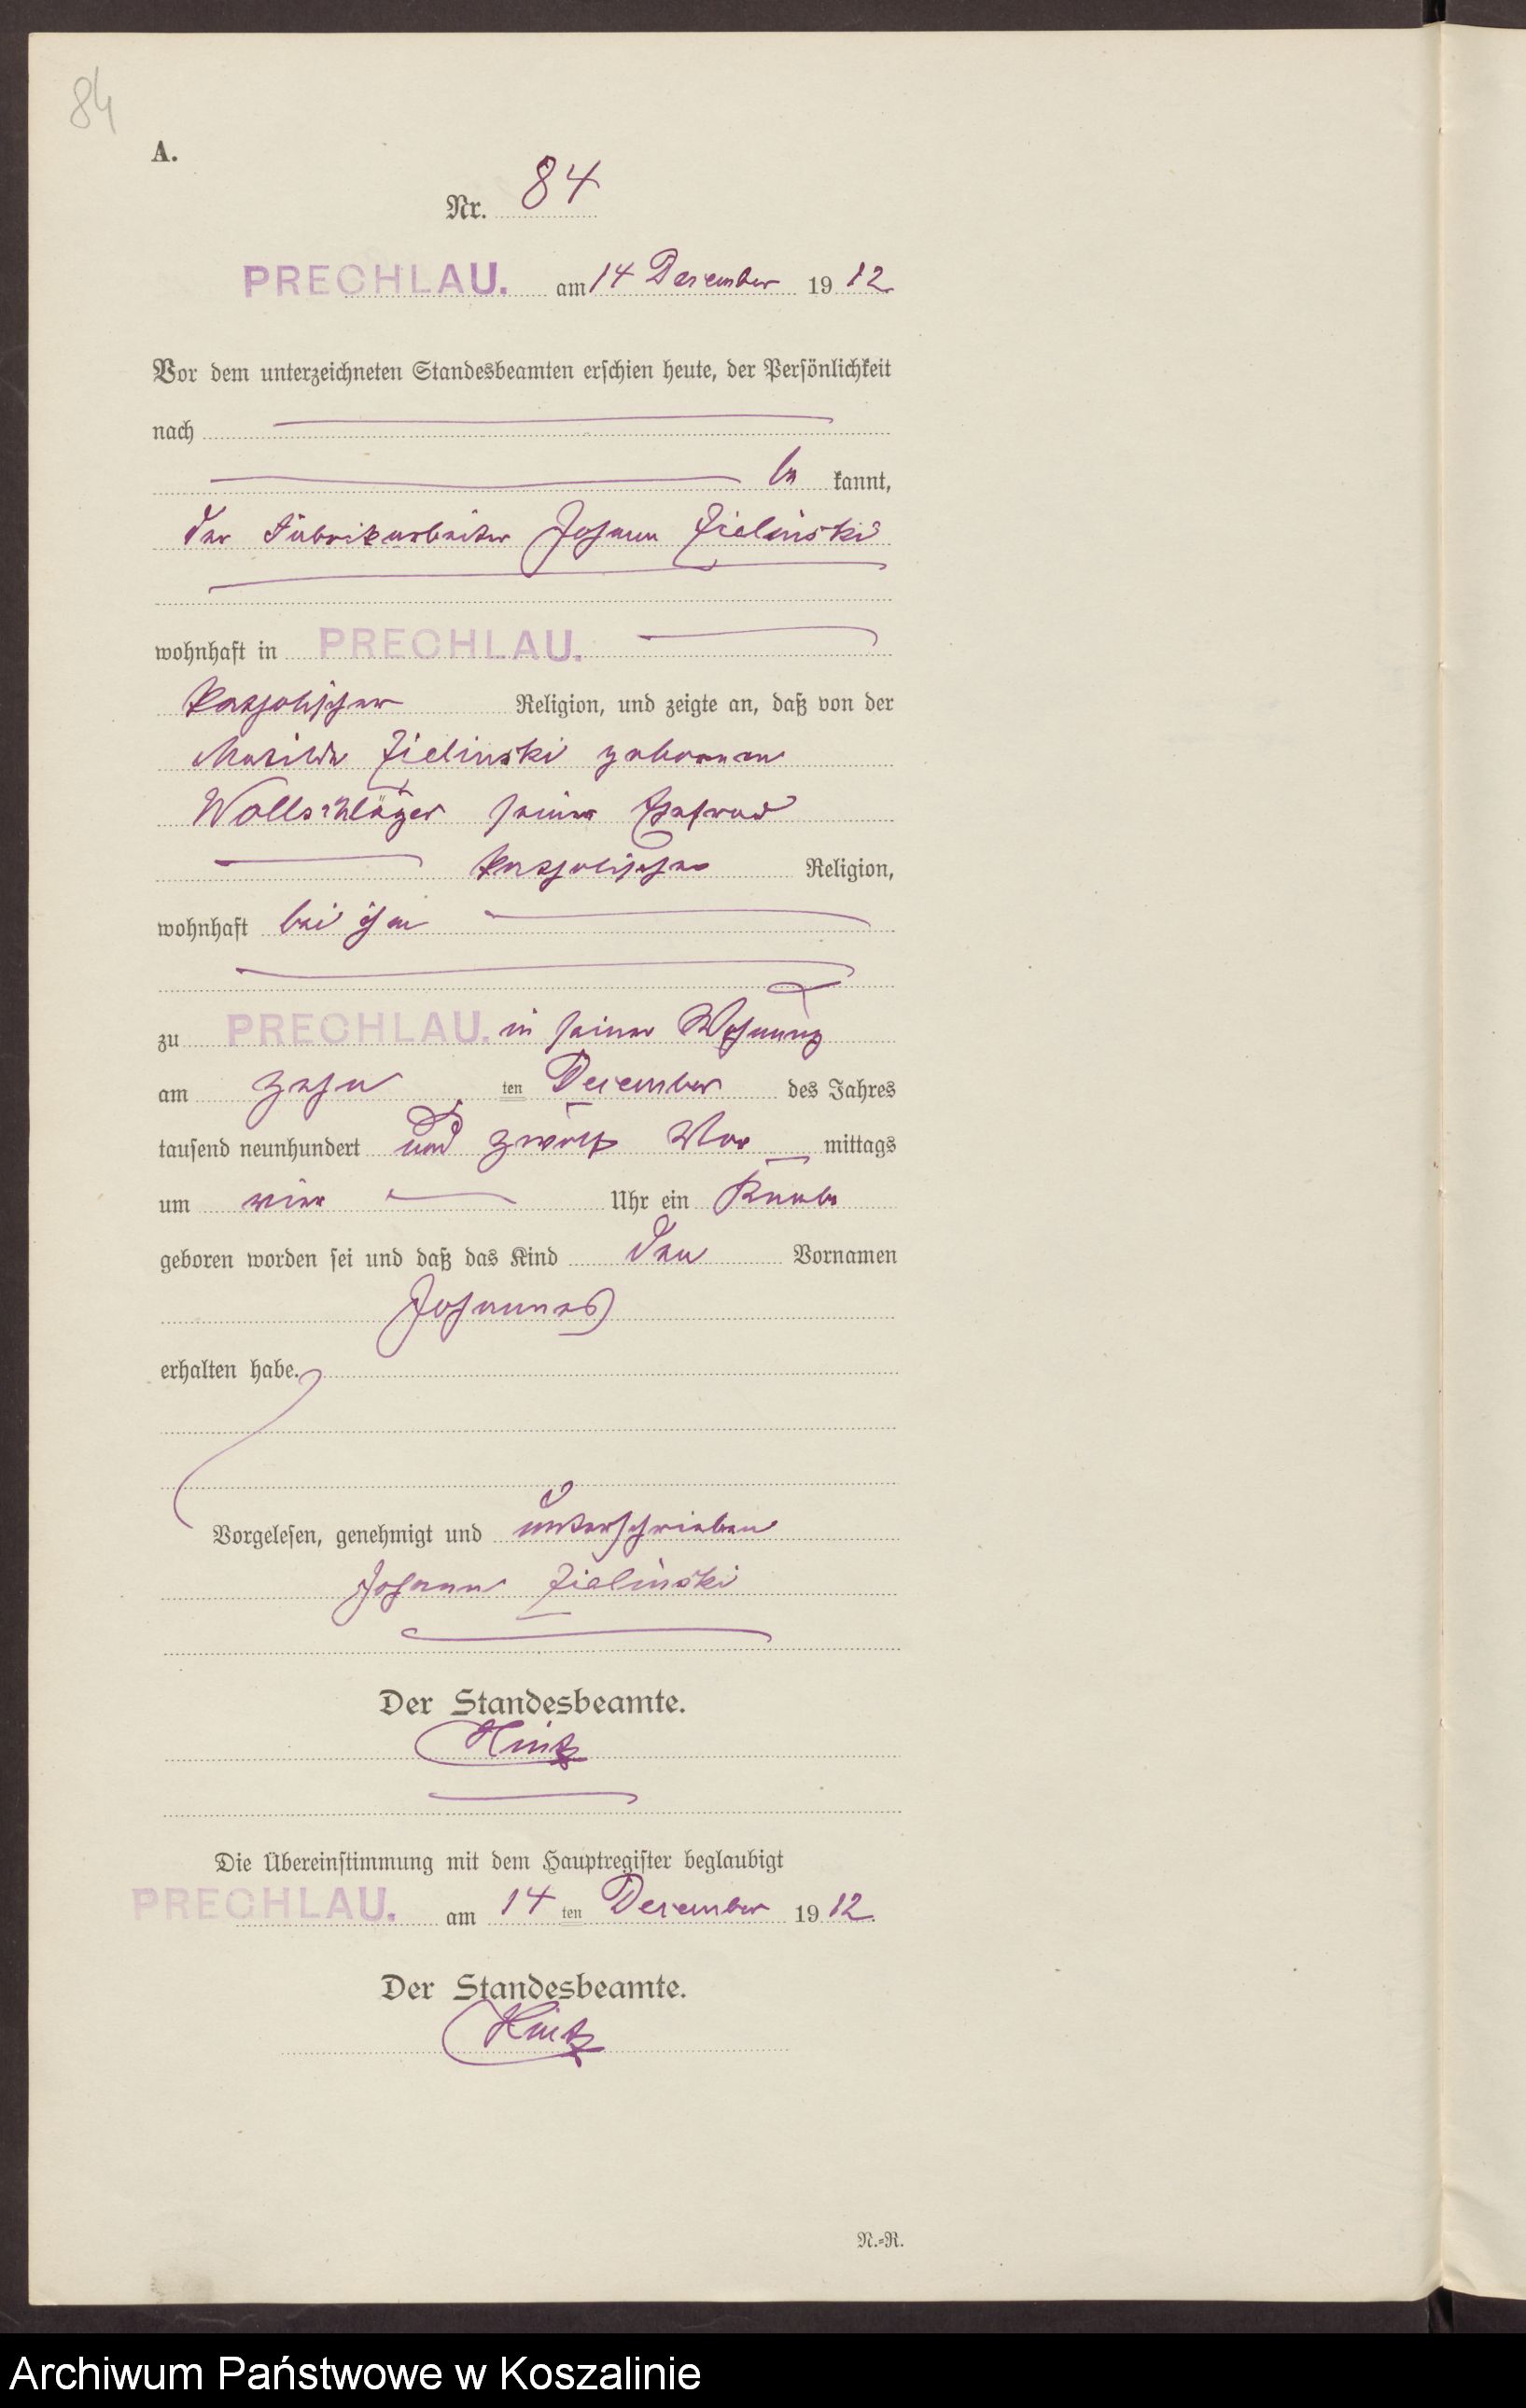 84
A.
Nr. 84
PRECHLAU. am 14 Dezember 1912
Vor dem unterzeichneten Standesbeamten erschien heute, der Persönlichkeit
nach
be kannt,
der Fabrikarbeiter Johann Zielinski
wohnhaft in PRECHLAU.
katholischer Religion, und zeigte an, daß von der
Matilde Zielinski geborenen
Wollschläger seiner Ehefrau
katholischer Religion,
wohnhaft bei ihm
zu PRECHLAU. in seiner Wohnung
am zehn ten Dezember des Jahres
tausend neunhundert und zwölf Vor mittags
um vier Uhr ein Knabe
geboren worden sei und daß das Kind den Vornamen
Johannes
erhalten habe.
Vorgelesen, genehmigt und unterschrieben
Johann Zielinski
Der Standesbeamte.
Hintz
Die Übereinstimmung mit dem Hauptregister beglaubigt
PRECHLAU. am 14 ten Dezember 1912.
Der Standesbeamte.
Hintz
N.=R.
Archiwum Państwowe w Koszalinie